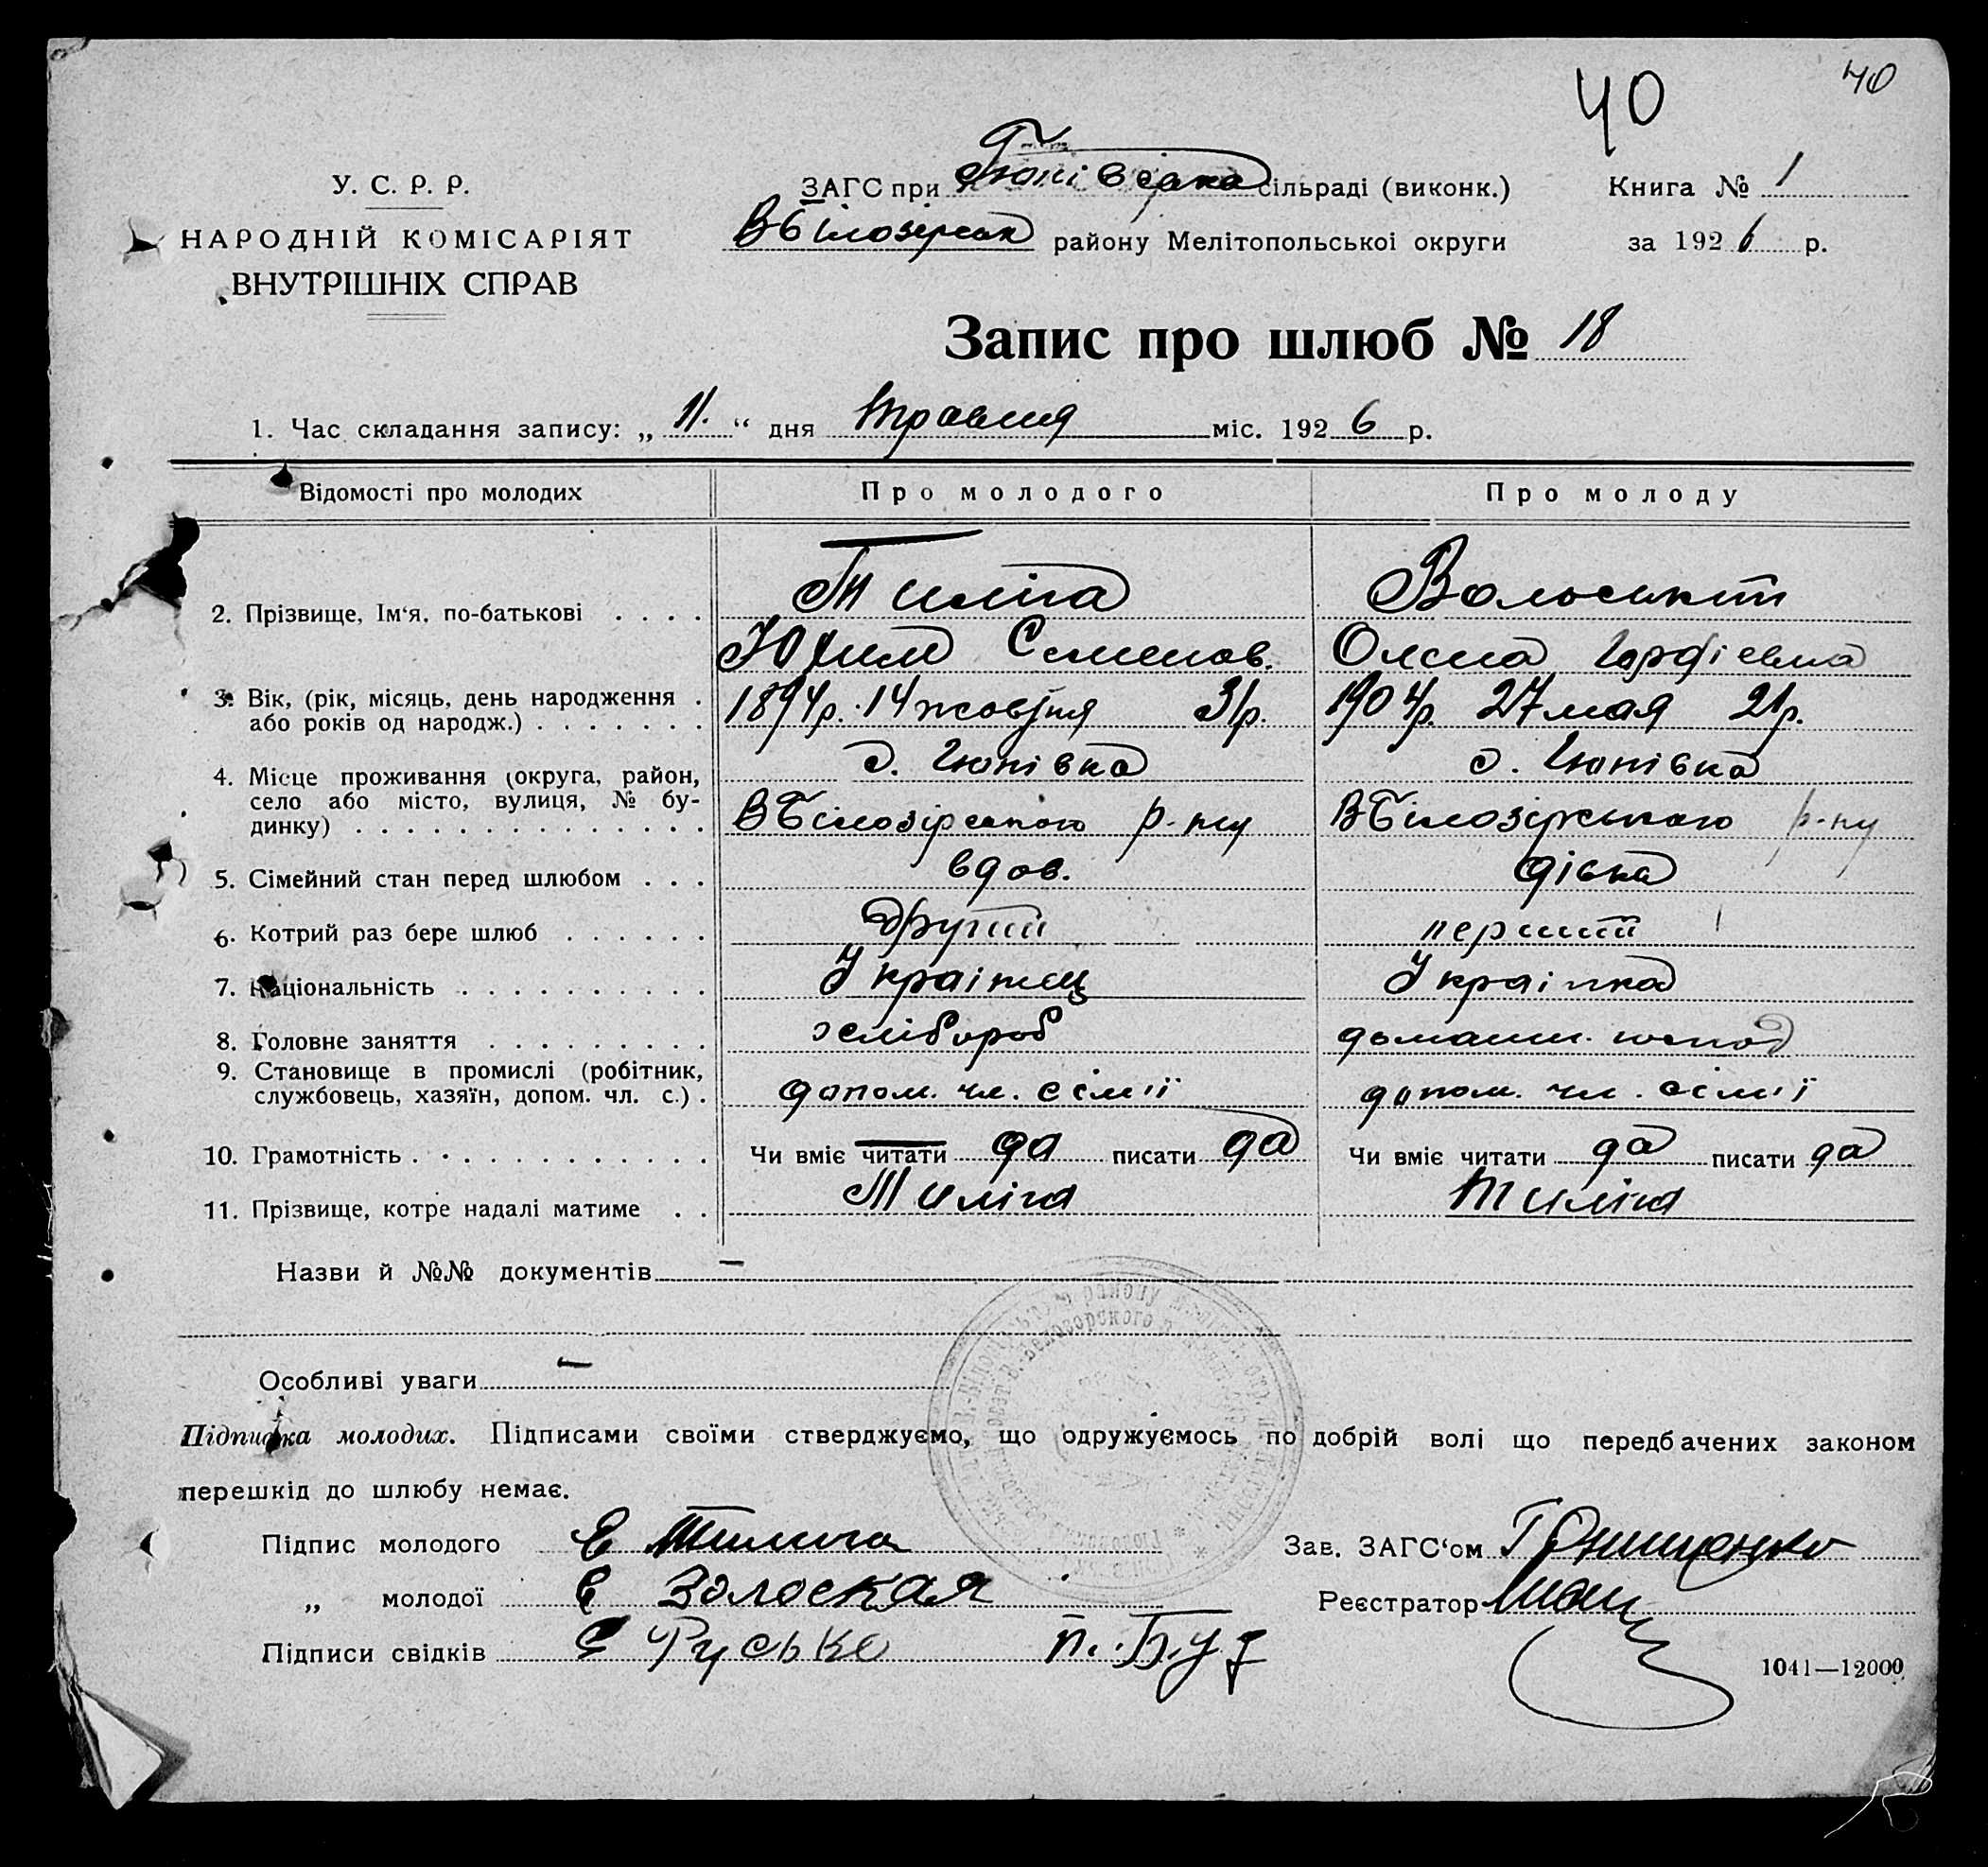 40 40
У. С. Р. Р.
НАРОДНІЙ КОМІСАРІЯТ
ВНУТРІШНІХ СПРАВ
ЗАГС при Гюнівська сільраді (виконк.)
ВБілозірськ району Мелітопольськоі округи
Книга № 1
за 1926 р.
Запис про шлюб № 18
1. Час складання запису: „ 11. “ дня травня міс. 1926 р.
Відомості про молодих
Про молодого
Про молоду
2. Прізвище, Ім‘я, по-батькові . . . .
Тиліга
Юхим Семенов.
Олена
3. Вік, (рік, місяць, день народження .
або років од народж.) . . . . . . .
1894р. 14 жовтня 31р.
1904р. 27 мая 21р.
4. Місце проживання (округа, район,
село або місто, вулиця, № бу-
динку) . . . . . . . . . . . . . .
с. Гюнівка
ВБілозірського р-ну
с. Гюнівка
ВБілозірського р-ну
5. Сімейний стан перед шлюбом . . .
вдов.
дівка
6. Котрий раз бере шлюб . . . . . .
другий
перший
7. Національність . . . . . . . . . .
Українец
Українка
8. Головне заняття . . . . . . . . .
хлібороб
домашн. господ
9. Становище в промислі (робітник,
службовець, хазяїн, допом. чл. с.) .
допом. чл. сімії
допом. чл. сімії
10. Грамотність . . . . . . . . . . . .
Чи вміє читати да писати да
Чи вміє читати да писати да
11. Прізвище, котре надалі матиме . .
Тиліга
Тиліга
Назви й №№ документів —
Особливі уваги —
Підписка молодих. Підписами своїми стверджуємо, що одружуємось по добрій волі що передбачених законом
перешкід до шлюбу немає.
Підпис молодого Е Тилига
„ молодої Е Золоская
Підписи свідків Е Русько П. Буд
Зав. ЗАГС‘ом Г Онищенко
Реєстратор
1041—12000